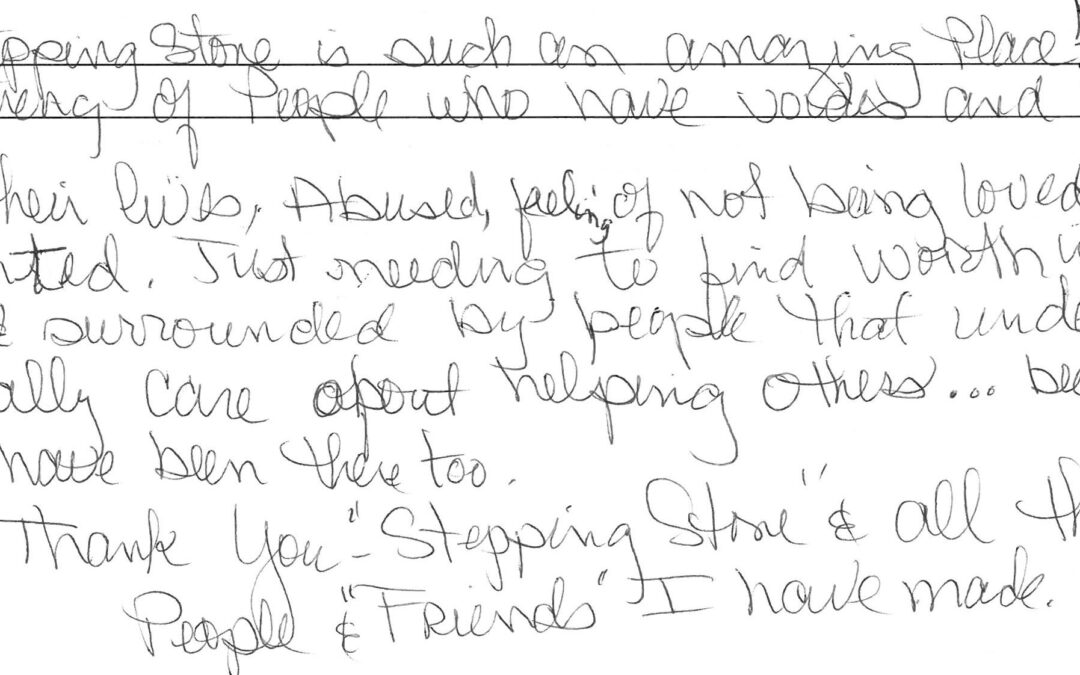 pping Stone is such an amazing Place!
ieng of People who have voides and
heir lives, Abused, feeling of not being loved
nted. Just needing to find worth i
& surrounded by people that unde
ally care about helping others... bec
have been there too.
Thank You - "Stepping Stone" & all th
People & "Friends" I have made.